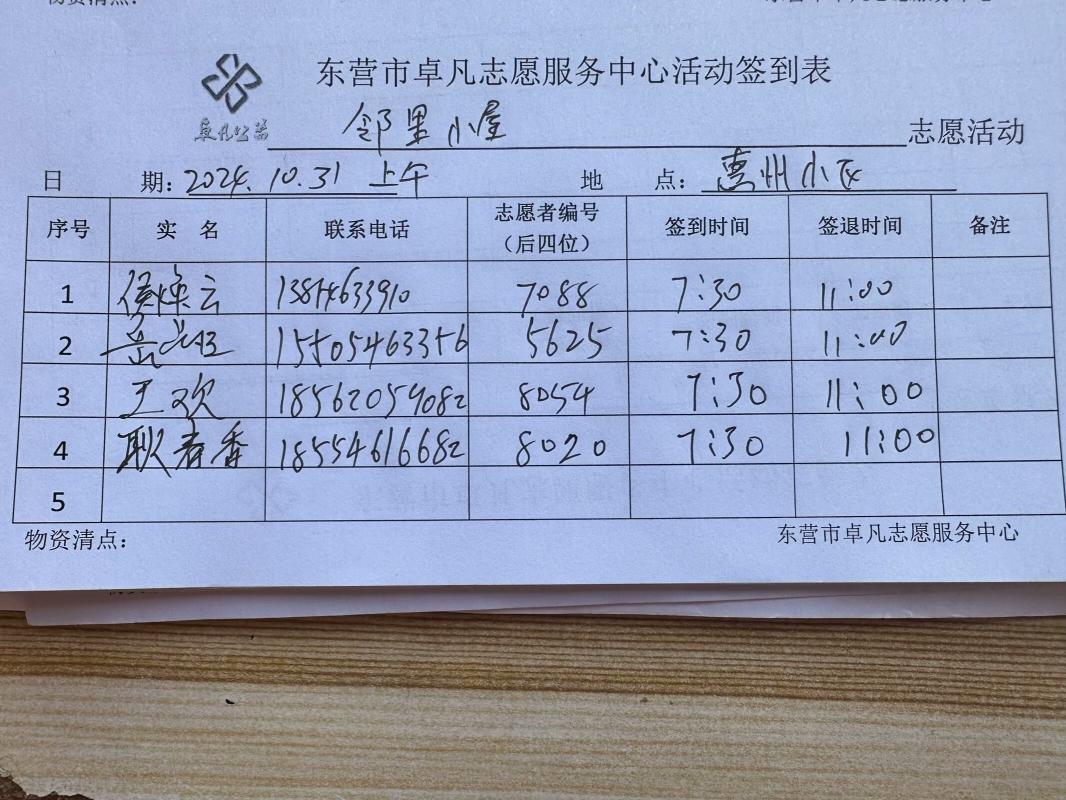 物资清点:
东营市卓凡志愿服务中心
东营市卓凡志愿服务中心活动签到表
卓凡公益
邻里小屋 志愿活动
日 期: 2024.10.31 上午 地 点: 惠州小区
序号 实 名 联系电话 志愿者编号（后四位） 签到时间 签退时间 备注
1 云 7088 7:30 11:00
2 岳 5625 7:30 11:00
3 王欢 18562059082 8054 7:30 11:00
4 耿春香 18554616682 8020 7:30 11:00
5
物资清点: 东营市卓凡志愿服务中心